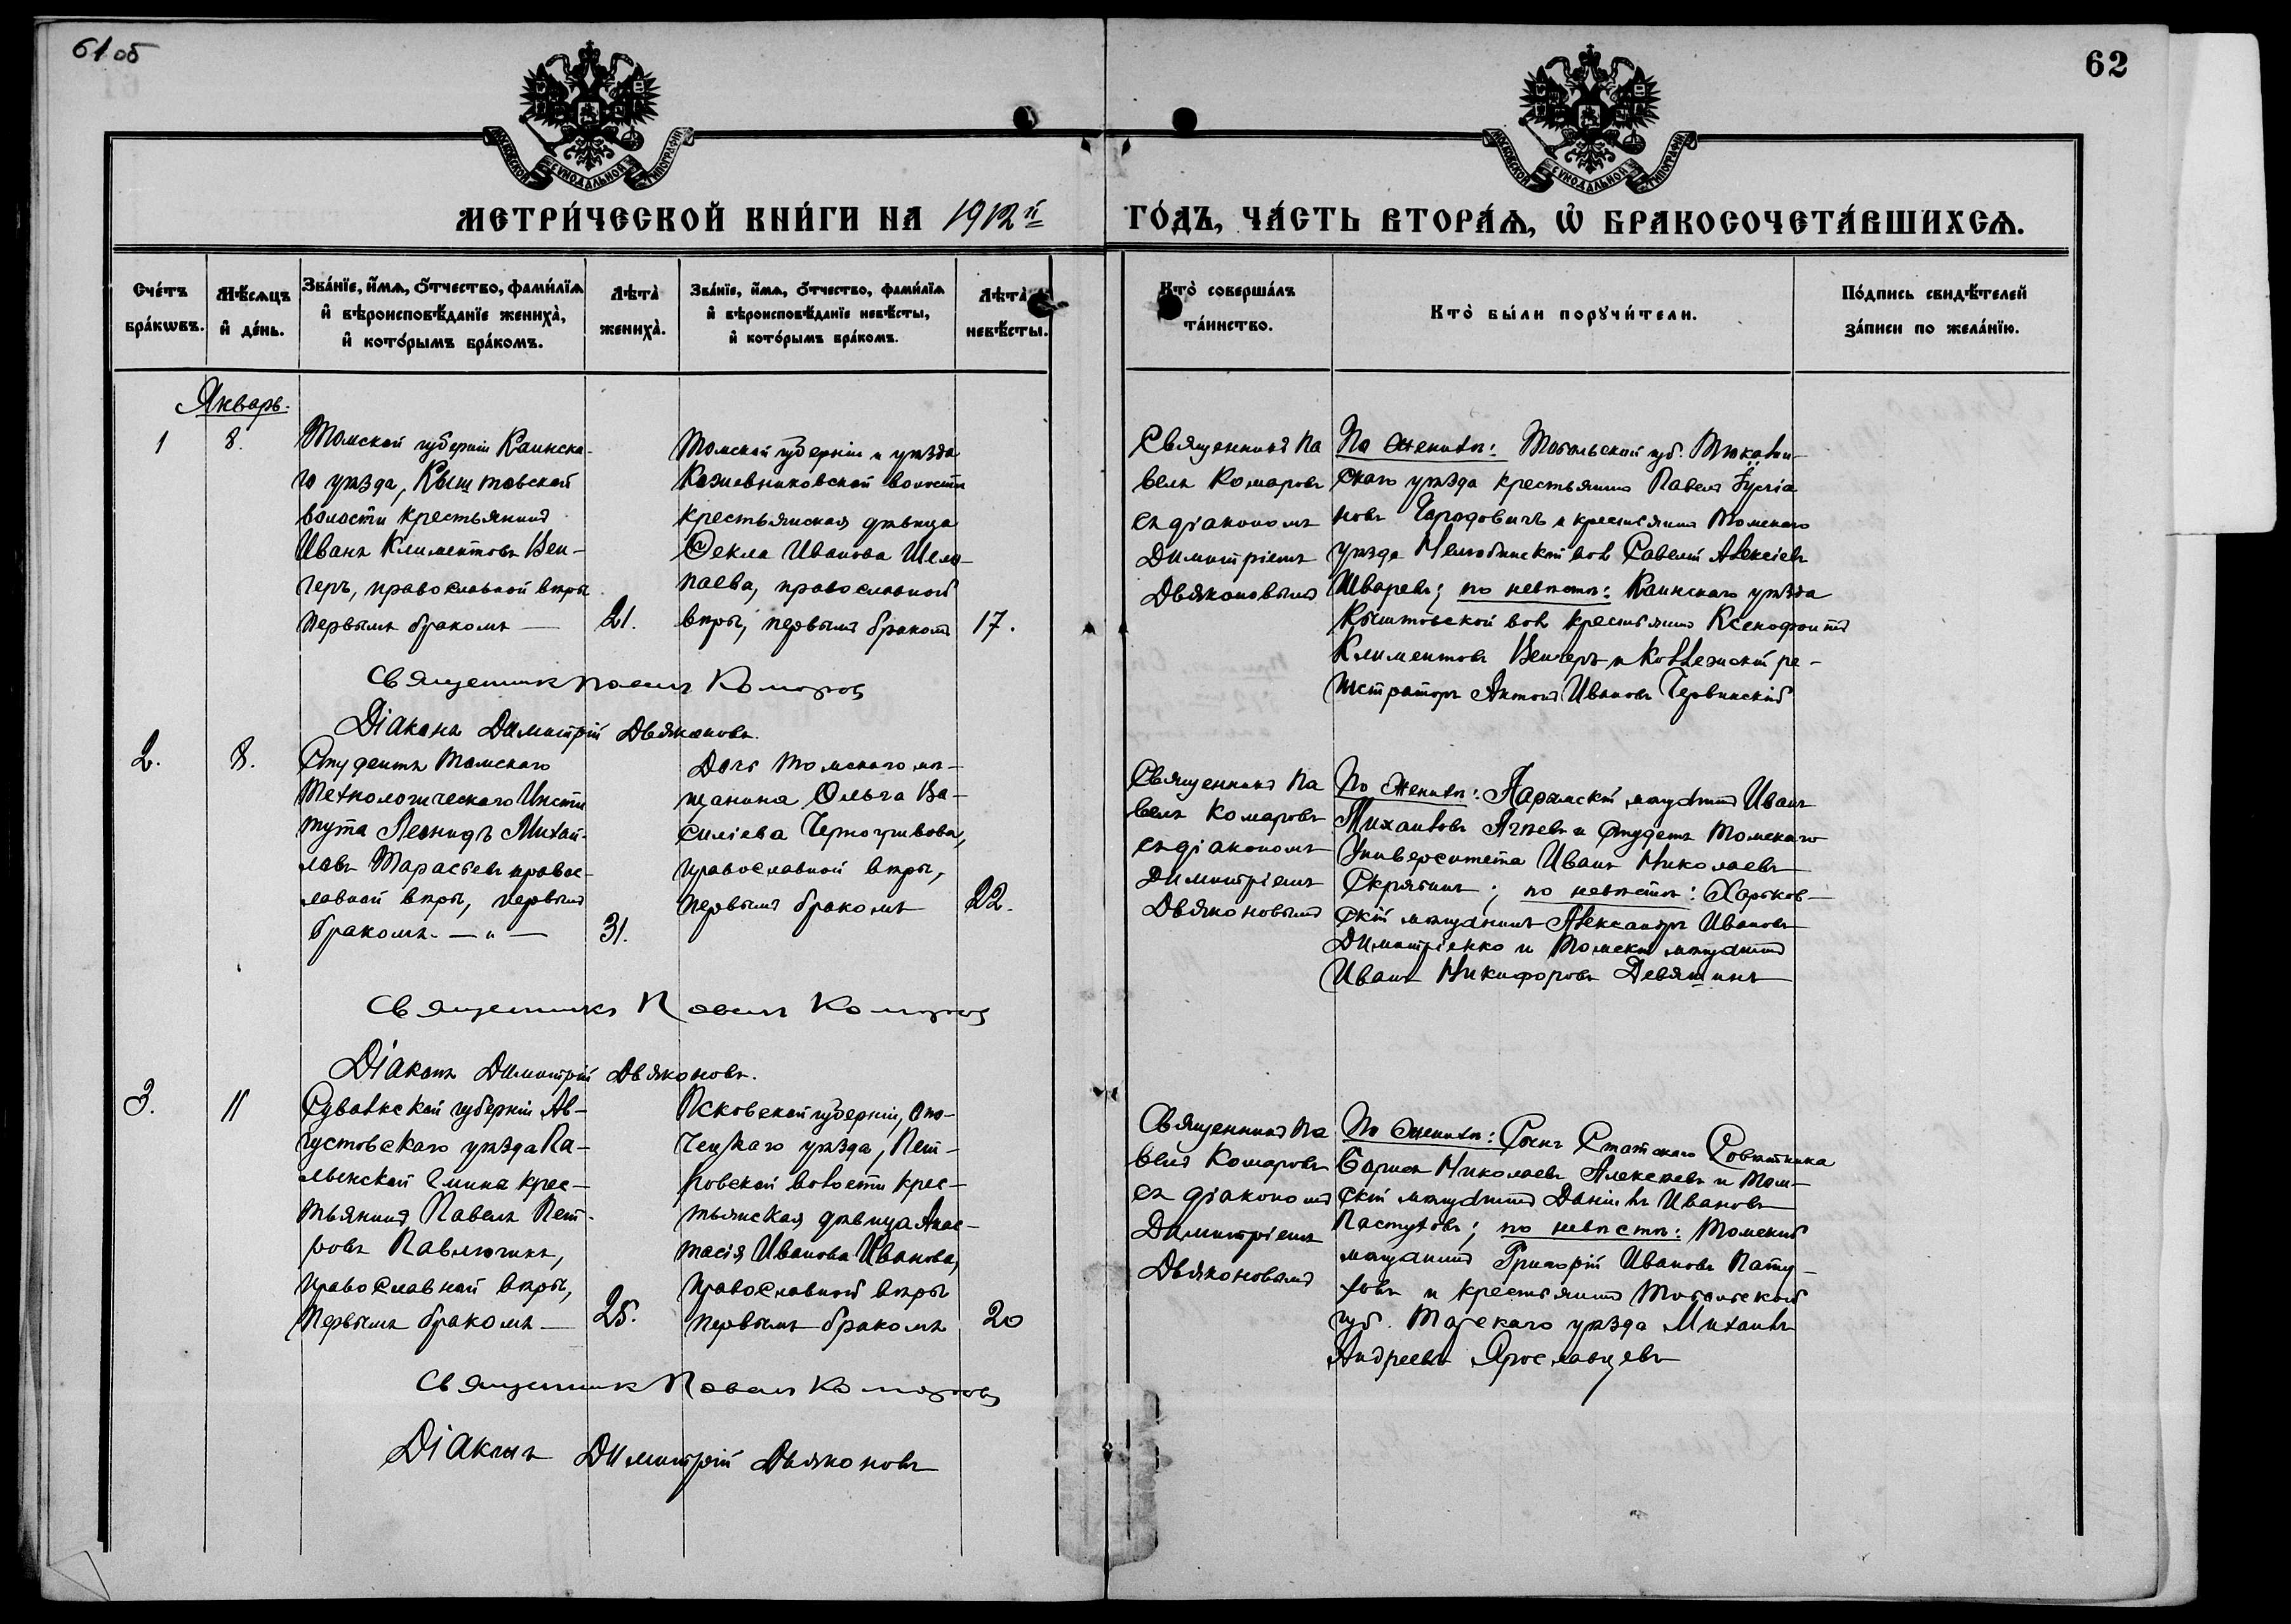 61 об
62
МОСКОВСКОЙ СѴНОДАЛЬНОЙ ТИПОГРАФІИ
МОСКОВСКОЙ СѴНОДАЛЬНОЙ ТИПОГРАФІИ
МЕТРИ́ЧЕСКОЙ КНИ́ГИ НА 1912й
ГО́ДЪ, ЧА́СТЬ ВТОРА́Ѧ, Ѡ БРАКОСОЧЕТА́ВШИХСѦ.
Сче́тъ
бра́кѡвъ.
Мѣ́сѧцъ
и҆ де́нь.
Зва́нїе, и҆́мѧ, ѻ҆́тчество, фами́лїѧ
и҆ вѣроисповѣ́данїе жениха̀,
и҆ кото́рымъ бра́комъ.
Лѣта̀
жениха̀.
Зва́нїе, и҆́мѧ, ѻ҆́тчество, фами́лїѧ
и҆ вѣроисповѣ́данїе невѣ́сты,
и҆ кото́рымъ бра́комъ.
Лѣта̀
невѣ́сты.
Кто̀ соверша́лъ
та́инство.
Кто̀ бы́ли порꙋчи́тели.
По́дпись свидѣ́телей
за́писи по жела́нїю.
Январь.
1
8.
Томской губерніи Каинска-
го уѣзда, Кыштовской
волости крестьянинъ
Иванъ Климентовъ Вен-
геръ, православной вѣры
первымъ бракомъ —
21.
Томской губерніи и уѣзда
Кожевниковской волости
крестьянская дѣвица
Ѳекла Иванова Шело-
паева, православной
вѣры, первымъ бракомъ
17.
Священникъ Па
велъ Комаровъ
съ діакономъ
Димитріемъ
Дьяконовымъ
По женихѣ: Тобольской губ. Тюкалин-
скаго уѣзда крестьянинъ Павелъ
новъ и крестьянинъ Томскаго
уѣзда Нелюбинской вол Савелій Алексѣевъ
Шваревъ; по невѣстѣ: Каинскаго уѣзда
Кыштовской вол крестьянинъ Ксенофонтъ
Климентовъ Венгеръ и Коллежскій ре-
гистраторъ Антонъ Ивановъ Червинскій
Священникъ Павелъ Комаровъ
Діаконъ Димитрій Дьяконовъ.
2.
8.
Студентъ Томскаго
Технологическаго Инсти
тута Леонидъ Михай-
ловъ Тарасьевъ правос-
лавной вѣры, первымъ
бракомъ. — " —
31.
Дочь Томскаго мѣ-
щанина Ольга Ва-
силіева Черногривова,
православной вѣры,
первымъ бракомъ
22.
Священникъ Па
велъ Комаровъ
съ діакономъ
Димитріемъ
Дьяконовымъ
По женихѣ: Нарымскій мѣщанинъ Иванъ
Михаиловъ Агѣевъ и Студентъ Томскаго
Университета Иванъ Николаевъ
Скрябинъ; по невѣстѣ: Харьков-
скій мѣщанинъ Александръ Ивановъ
Димитріенко и Томскій мѣщанинъ
Иванъ Никифоровъ Девятинъ
Священникъ Павелъ Комаровъ
Діаконъ Димитрій Дьяконовъ.
3.
11
Сувалкской губерніи Ав-
густовскаго уѣзда Ка-
льской Гмина крес-
тьянинъ Павелъ Пет-
ровъ Павлючикъ,
православной вѣры,
первымъ бракомъ —
25.
Псковской губерніи, Опо-
чецкаго уѣзда, Пет-
ровской волости крес-
тьянская дѣвица Анас-
тасія Иванова Иванова,
православной вѣры
первымъ бракомъ
20
Священникъ Па
велъ Комаровъ
съ діакономъ
Димитріемъ
Дьяконовымъ
По женихѣ: Сынъ Статскаго Совѣтника
Борисъ Николаевъ Алексѣевъ и Том-
скій мѣщанинъ Даніилъ Ивановъ
Пастуховъ; по невѣстѣ: Томскій
мѣщанинъ Григорій Ивановъ Пасту-
ховъ и крестьянинъ Тобольской
губ. Тарскаго уѣзда Михаилъ
Андреевъ Ярославцевъ
Священникъ Павелъ Комаровъ
Діаконъ Димитрій Дьяконовъ